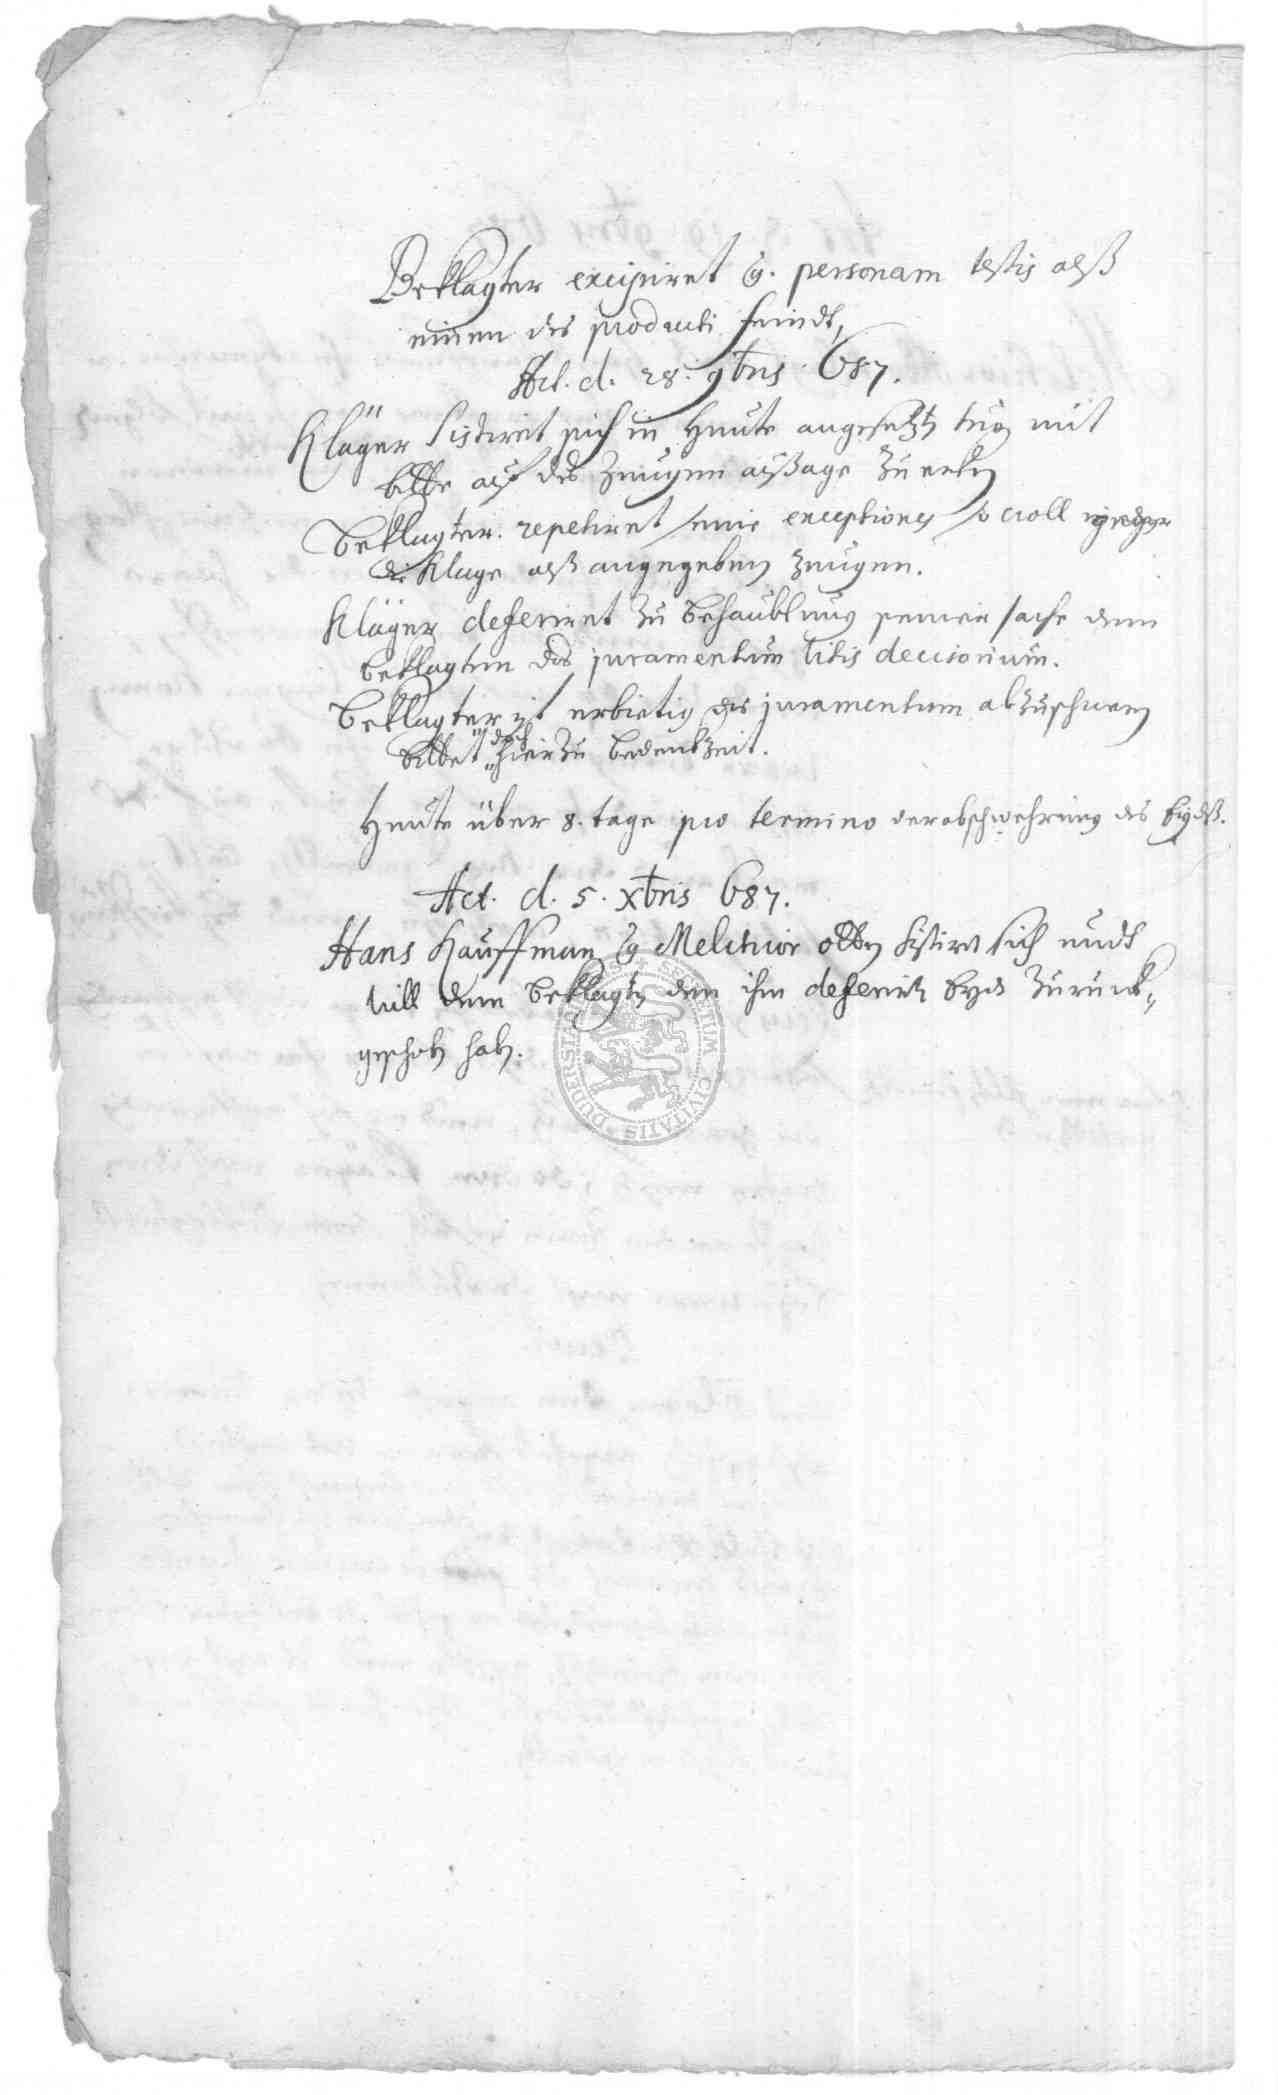 Beklagter excipiret cg. personam testis alß
einen des producti feindt,
Act. d. 28. 9bris 687.
Kläger sistiret sich in heute angesetzten mit
bitte auf des Zeugen außage zu
Beklagter repetiret seine exceptiones so woll gegen
die Klage alß angegeben Zeugen.
Kläger deferiret zu behaubtung seiner sache dem
beklagten das juramentum litis decisorium.
Beklagter ist erbietig das juramentum abzuschweren
bittet doch hierzu bedenkzeit.
Heute über 8. tage pro termino der abschwehrung des Eydß.
Act. d. 5. xbris 687.
Hans Kauffman cg Melchior sistiret sich undt
will dem beklagten den ihm deferirten Eydt zurück-
geschoben haben.
SECRETUM CIVITATIS DUDERSTAD